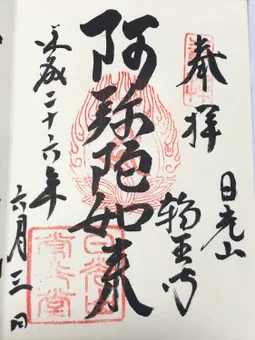 奉拝
日光山
輪王寺
阿弥陀如来
平成二十六年
六月三日